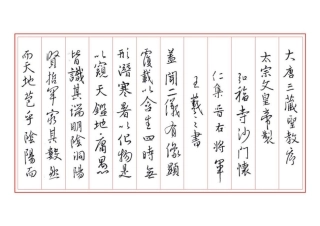 大唐三藏聖教序
太宗文皇帝製
弘福寺沙門懷
仁集晋右將軍
王羲之書
蓋聞二儀有像顯
覆載以含生四時無
形潛寒暑以化物是
以窺天鑑地庸愚
皆識其端明陰洞陽
賢哲罕窮其數然
而天地苞乎陰陽而